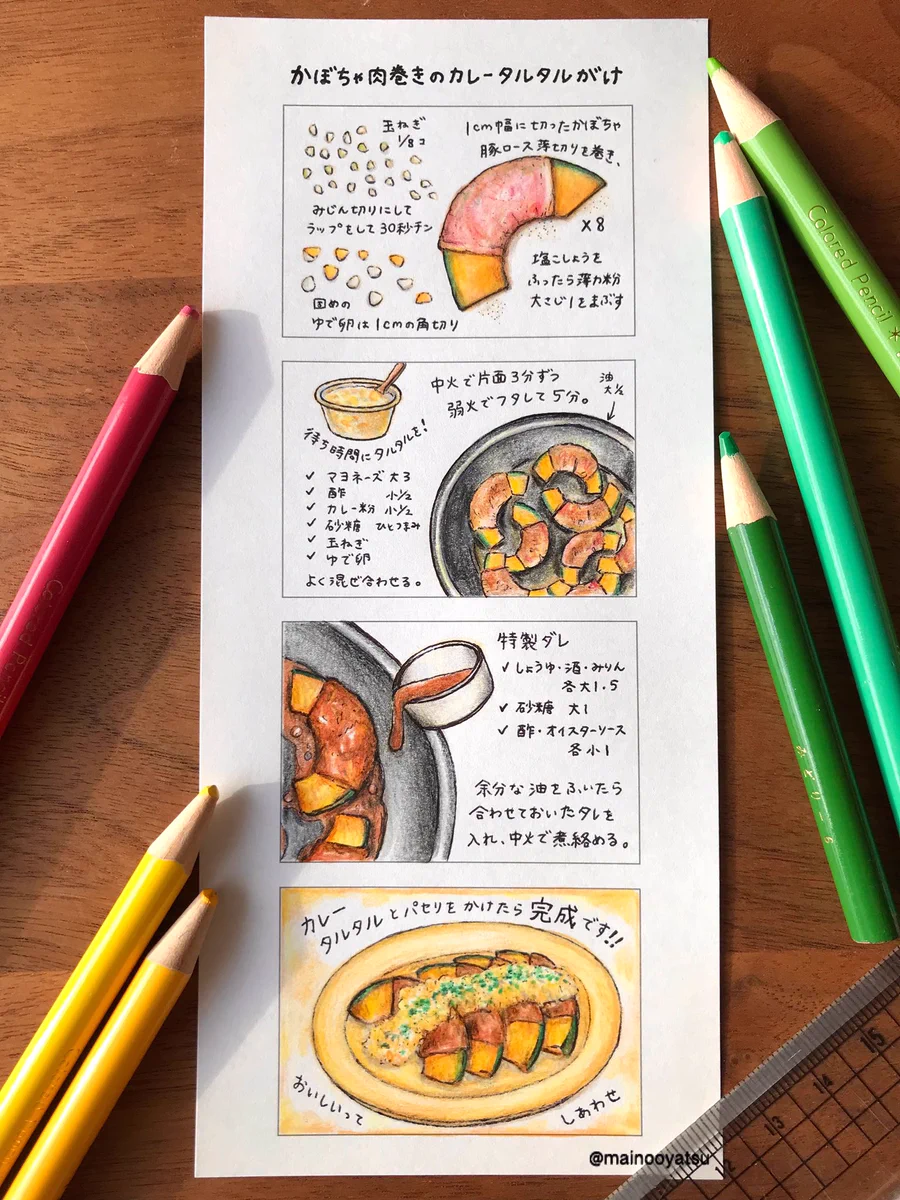 かぼちゃ肉巻きのカレータルタルがけ
玉ねぎ
1/8コ
みじん切りにして
ラップをして30秒チン
固めの
ゆで卵は1cmの角切り
1cm幅に切ったかぼちゃ
豚ロース薄切りを巻き、
×8
塩こしょうを
ふったら薄力粉
大さじ1をまぶす
中火で片面3分ずつ
弱火でフタして5分。
油
大1/2
待ち時間にタルタルを!
✓ マヨネーズ 大3
✓ 酢 小1/2
✓ カレー粉 小1/2
✓ 砂糖 ひとつまみ
✓ 玉ねぎ
✓ ゆで卵
よく混ぜ合わせる。
特製ダレ
✓ しょうゆ・酒・みりん
各大1.5
✓ 砂糖 大1
✓ 酢・オイスターソース
各小1
余分な油をふいたら
合わせておいたタレを
入れ、中火で煮絡める。
カレー
タルタルとパセリをかけたら完成です!!
おいしいって
しあわせ
@mainooyatsu
Colored Pencil *
Colored Pencil
みどりいろ
12 13 14 15